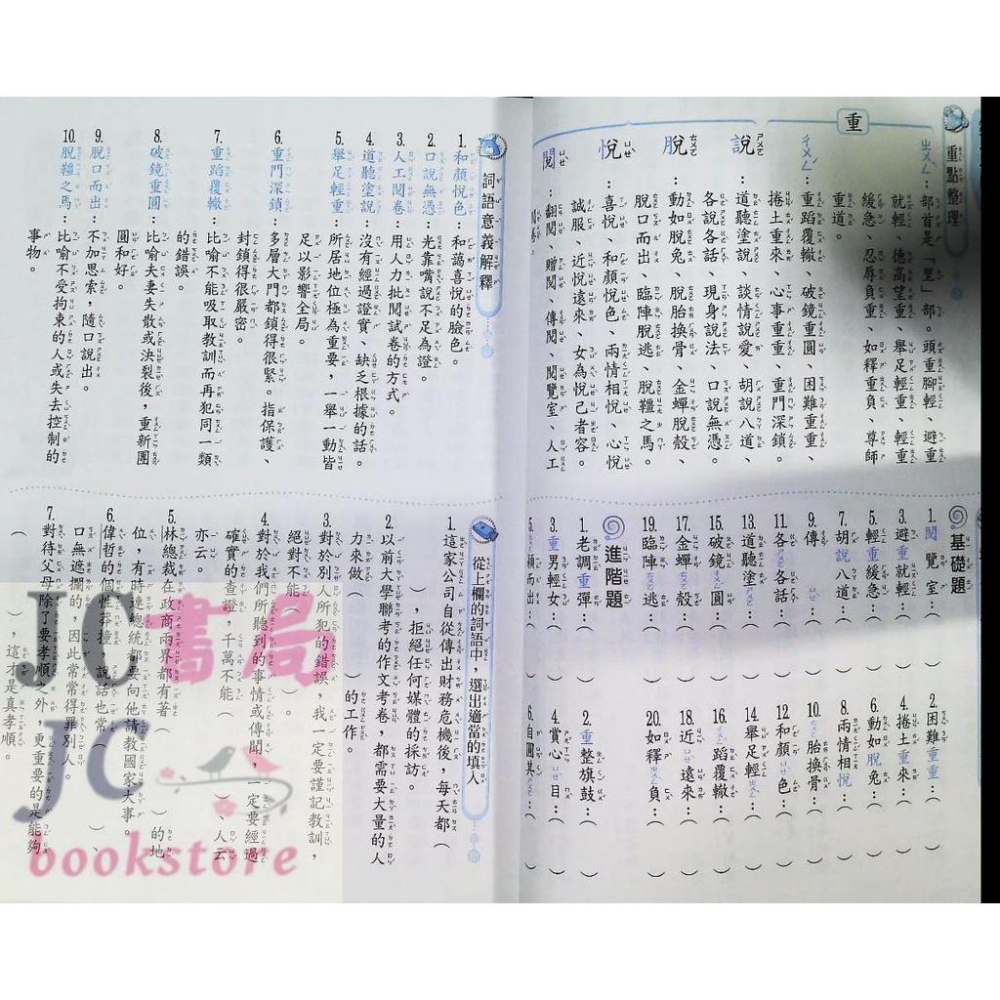 重點整理
重
ㄓㄨㄥˋ：部首是「里」部。頭重腳輕、避重
就輕、德高望重、舉足輕重、輕重
緩急、忍辱負重、如釋重負、尊師
重道。
ㄔㄨㄥˊ：重蹈覆轍、破鏡重圓、困難重重、
捲土重來、心事重重、重門深鎖。
說ㄕㄨㄛ：道聽塗說、談情說愛、胡說八道、
各說各話、現身說法、口說無憑。
脫ㄊㄨㄛ：動如脫兔、脫胎換骨、金蟬脫殼、
脫口而出、臨陣脫逃、脫韁之馬。
悅ㄩㄝˋ：喜悅、和顏悅色、兩情相悅、心悅
誠服、近悅遠來、女為悅己者容。
閱ㄩㄝˋ：翻閱、贈閱、傳閱、閱覽室、人工
閱卷。
詞語意義解釋
1. 和顏悅色：和藹喜悅的臉色。
2. 口說無憑：光靠嘴說不足為證。
3. 人工閱卷：用人力批閱試卷的方式。
4. 道聽塗說：沒有經過證實、缺乏根據的話。
5. 舉足輕重：所居地位極為重要，一舉一動皆
足以影響全局。
6. 重門深鎖：多層大門都鎖得很緊。指保護、
封鎖得很嚴密。
7. 重蹈覆轍：比喻不能吸取教訓而再犯同一類
的錯誤。
8. 破鏡重圓：比喻夫妻失散或決裂後，重新團
圓和好。
9. 脫口而出：不加思索，隨口說出。
10. 脫韁之馬：比喻不受拘束的人或失去控制的
事物。
基礎題
1. 閱覽室：（　）
2. 困難重重：（　）
3. 避重就輕：（　）
4. 捲土重來：（　）
5. 輕重緩急：（　）
6. 動如脫兔：（　）
7. 胡說八道：（　）
8. 兩情相悅：（　）
9. 傳ㄩㄝˋ：（　）
10. ㄊㄨㄛ胎換骨：（　）
11. 各ㄕㄨㄛ各話：（　）
12. 和顏ㄩㄝˋ色：（　）
13. 道聽塗ㄕㄨㄛ：（　）
14. 舉足輕ㄓㄨㄥˋ：（　）
15. 破鏡ㄔㄨㄥˊ圓：（　）
16. ㄔㄨㄥˊ蹈覆轍：（　）
17. 金蟬ㄊㄨㄛ殼：（　）
18. 近ㄩㄝˋ遠來：（　）
19. 臨陣ㄊㄨㄛ逃：（　）
20. 如釋ㄓㄨㄥˋ負：（　）
進階題
1. 老調重彈：（　）
2. 重整旗鼓：（　）
3. 重男輕女：（　）
4. 賞心ㄩㄝˋ目：（　）
5. 穎而出：（　）
6. 自圓其ㄕㄨㄛ：（　）
從上欄的詞語中，選出適當的填入
1. 這家公司自從傳出財務危機後，每天都（
），拒絕任何媒體的採訪。
2. 以前大學聯考的作文考卷，都需要大量的人
力來做（　）的工作。
3. 對於別人所犯的錯誤，我一定要謹記教訓，
絕對不能（　）。
4. 對於我們所聽到的事情或傳聞，一定要經過
確實的查證，千萬不能（　）、人云
亦云。
5. 林總裁在政商兩界都有著（　）的地
位，有時連總統都要向他請教國家大事。
6. 偉哲的個性莽撞，說話也常（　）、
口無遮攔的，因此常常得罪別人。
7. 對待父母除了要孝順之外，更重要的是能夠
（　），這才是真孝順。
JC書局
JC
bookstore